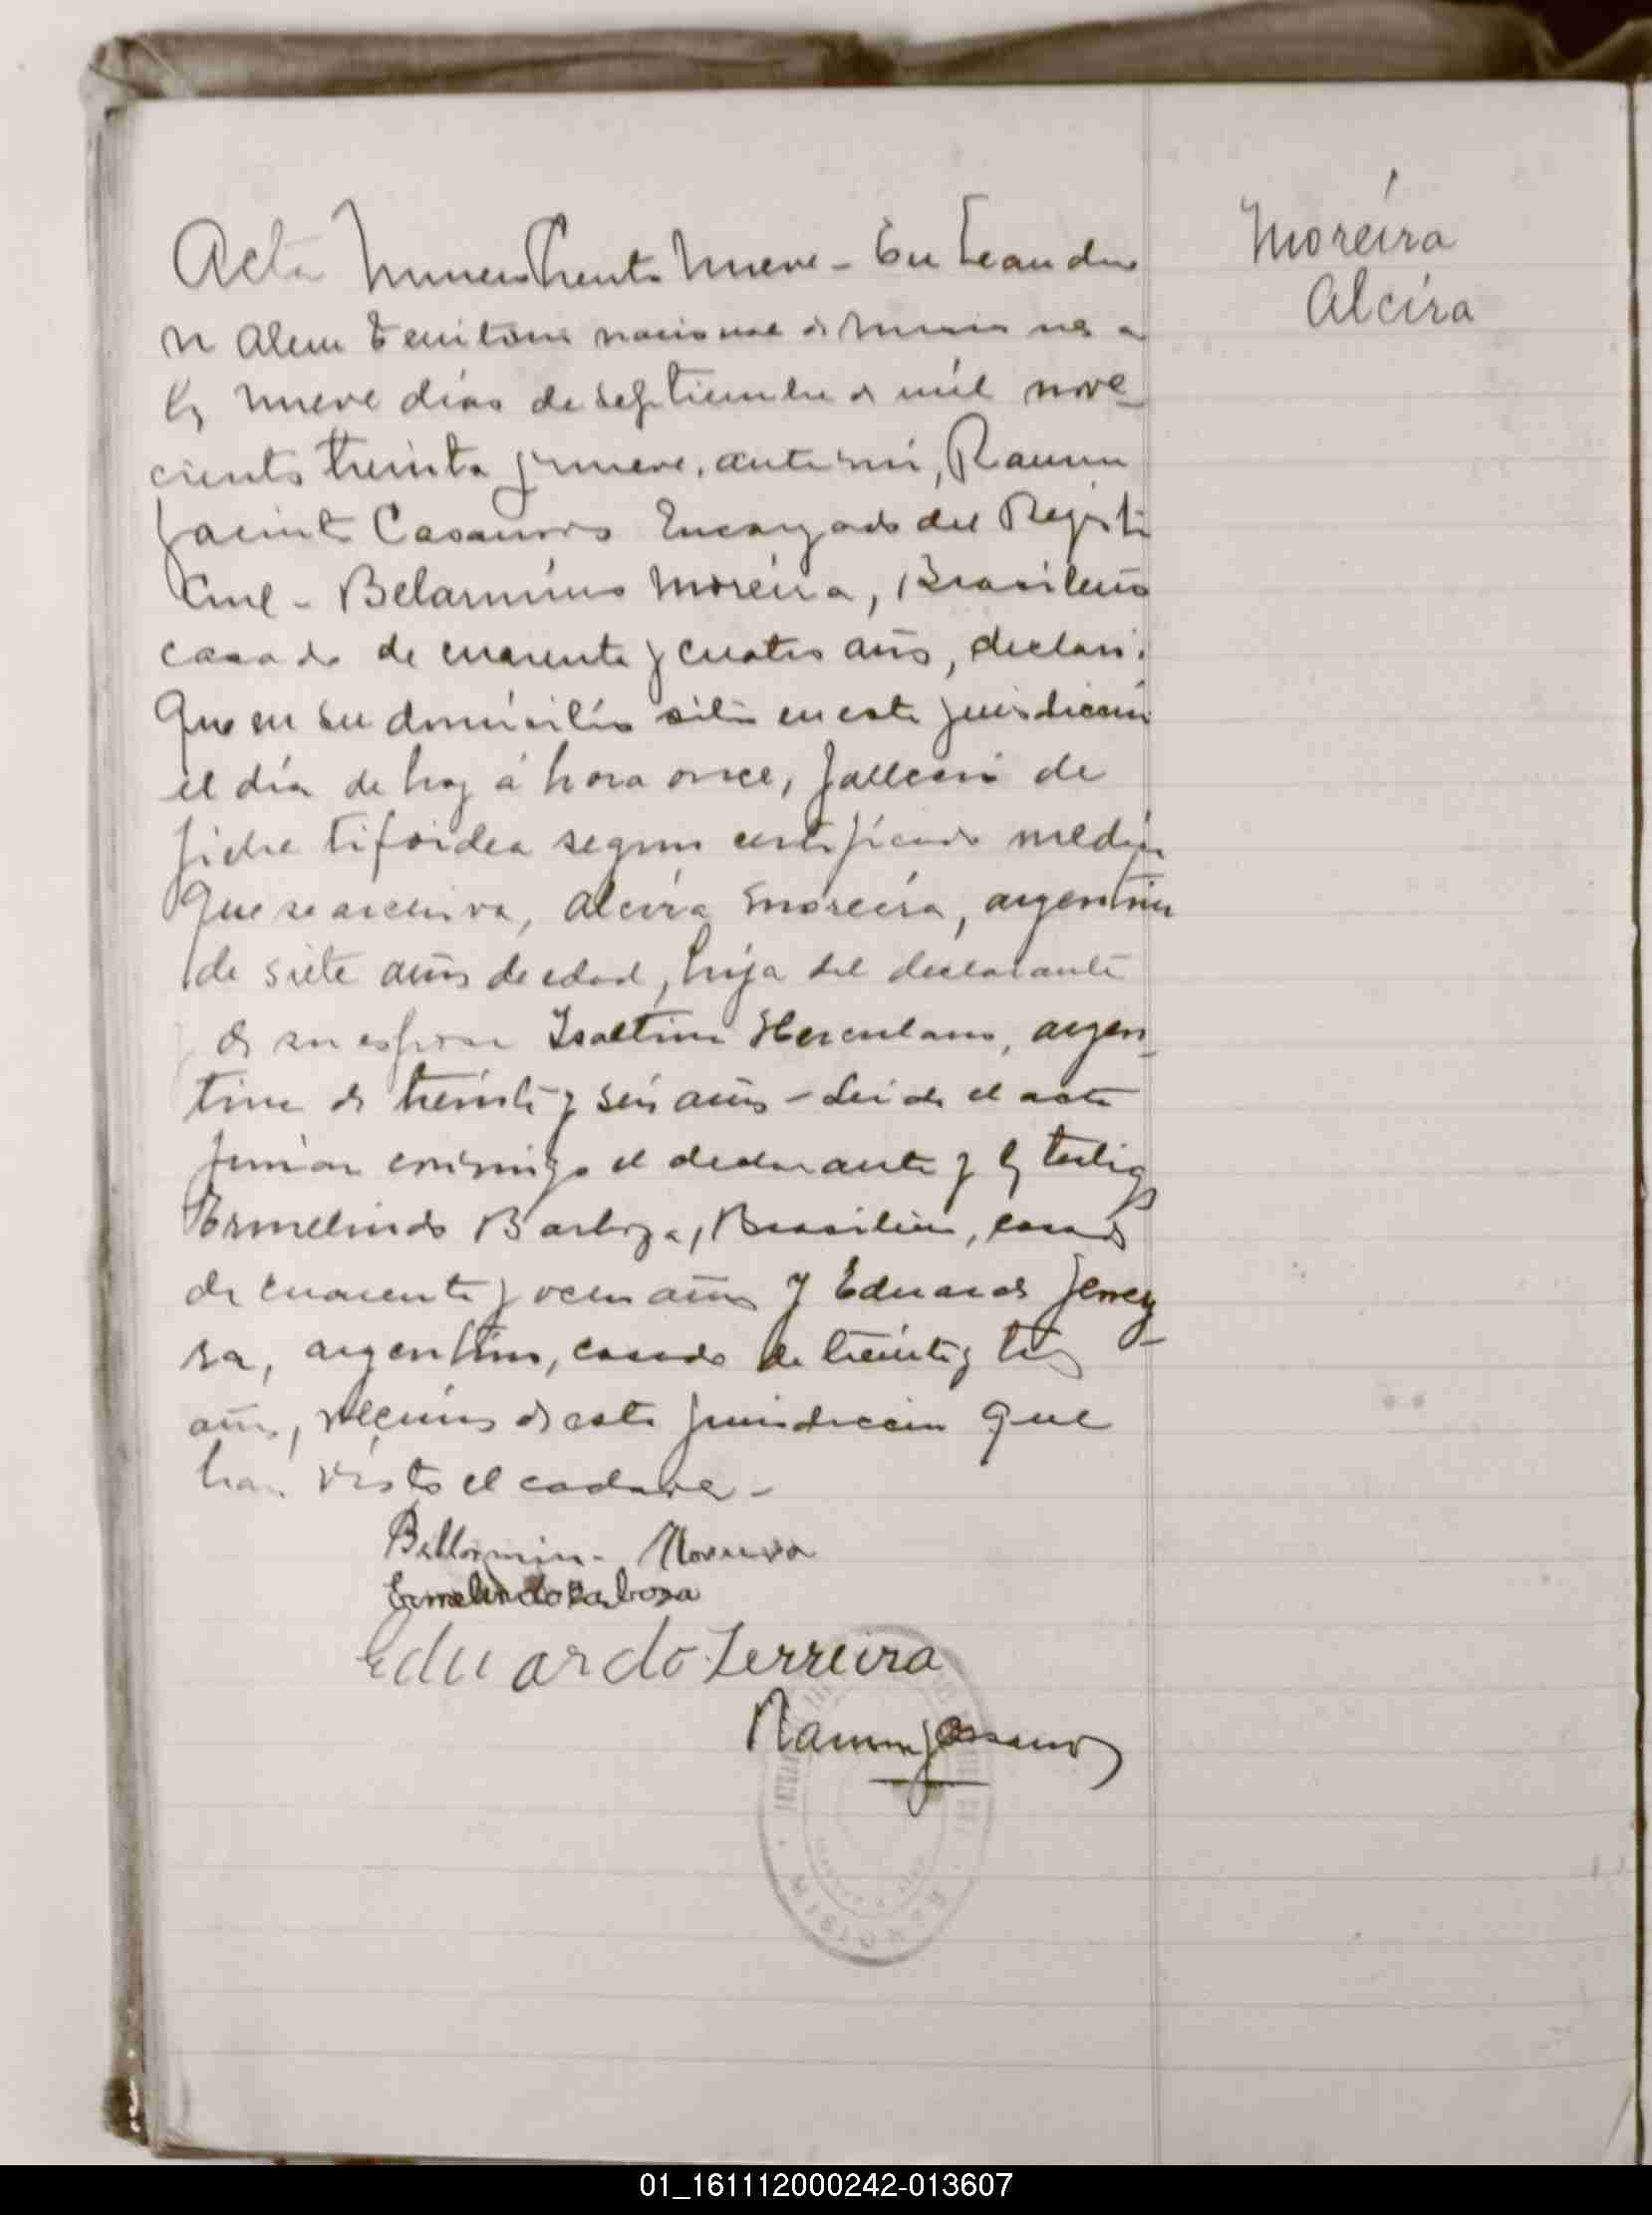 Moreira
Alcira
Acta Numero Treinta Nueve - En Leandro
N Alem Territorio nacional de Misiones a
los nueve días de septiembre de mil nove-
cientos treinta y nueve, ante mi, Ramon
Jacinto Casanova Encargado del Registro
Civil - Belarmino Moreira, Brasileño
casado de cuarenta y cuatro años, declaró:
Que en su domicilio sito en esta jurisdicción
el día de hoy á hora once, falleció de
fiebre tifoidea segun certificado medico
que se archiva, Alcira Moreira, argentina
de siete años de edad, hija del declarante
y de su esposa Isaltina Herculano, argen-
tina de treinta y seis años - Leida el acta
firman conmigo el declarante y los testigos
Ermelindo Barboza, Brasilero, casado
de cuarenta y ocho años y Eduardo Ferrey-
ra, argentino, casado de treinta y tres
años, vecinos de esta jurisdicción que
han visto el cadaver -
Bellarmino Moreira
Ermelindo Barboza
Eduardo Ferreira
Ramon J Casanova
01_161112000242-013607